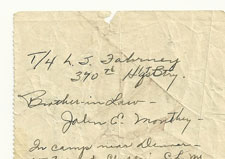 T/4 L. J. Fahrney
390th Hq Btry.
Brother-in Law -
John E. Monthey -
In camp near Denver -